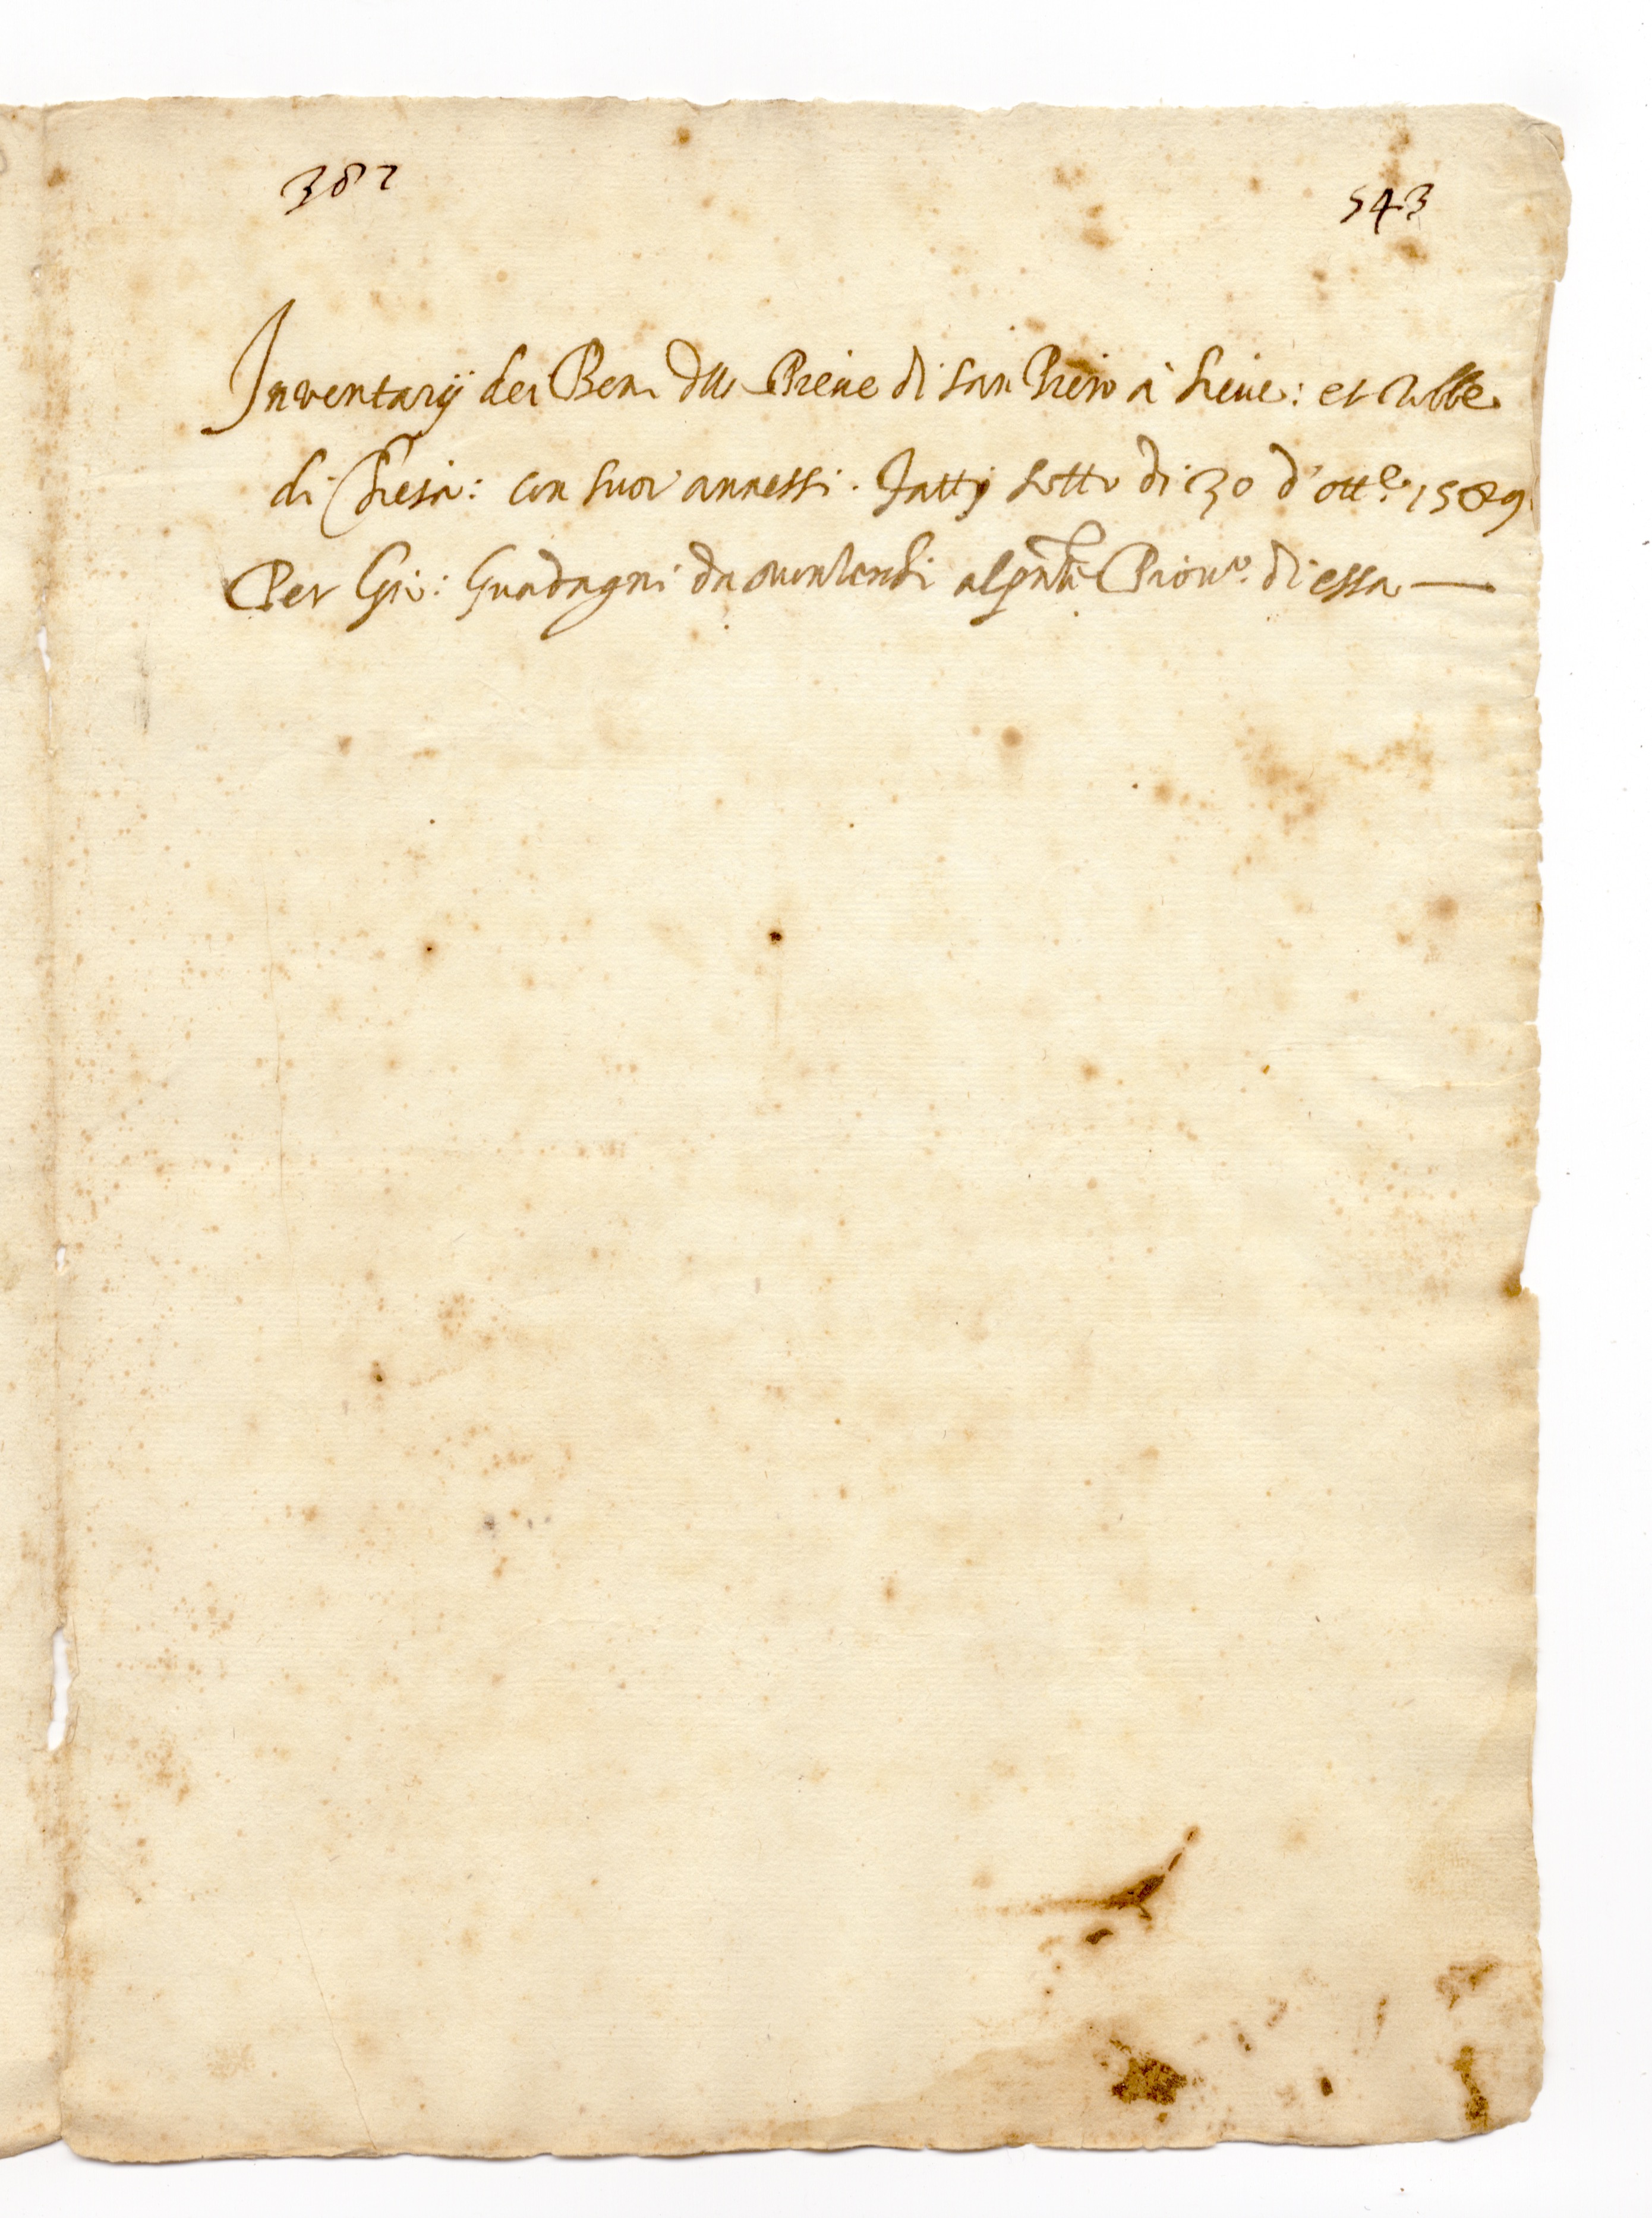 382
543
Inventarij dei Beni d'lla Pieve di San Piero à Sieve: et Robbe
di Chiesa: con suoi annessi. Fattj sotto di 30 d'ott.e 1589
Per Gio: Guadagni da al p'nte Piouo. di essa —